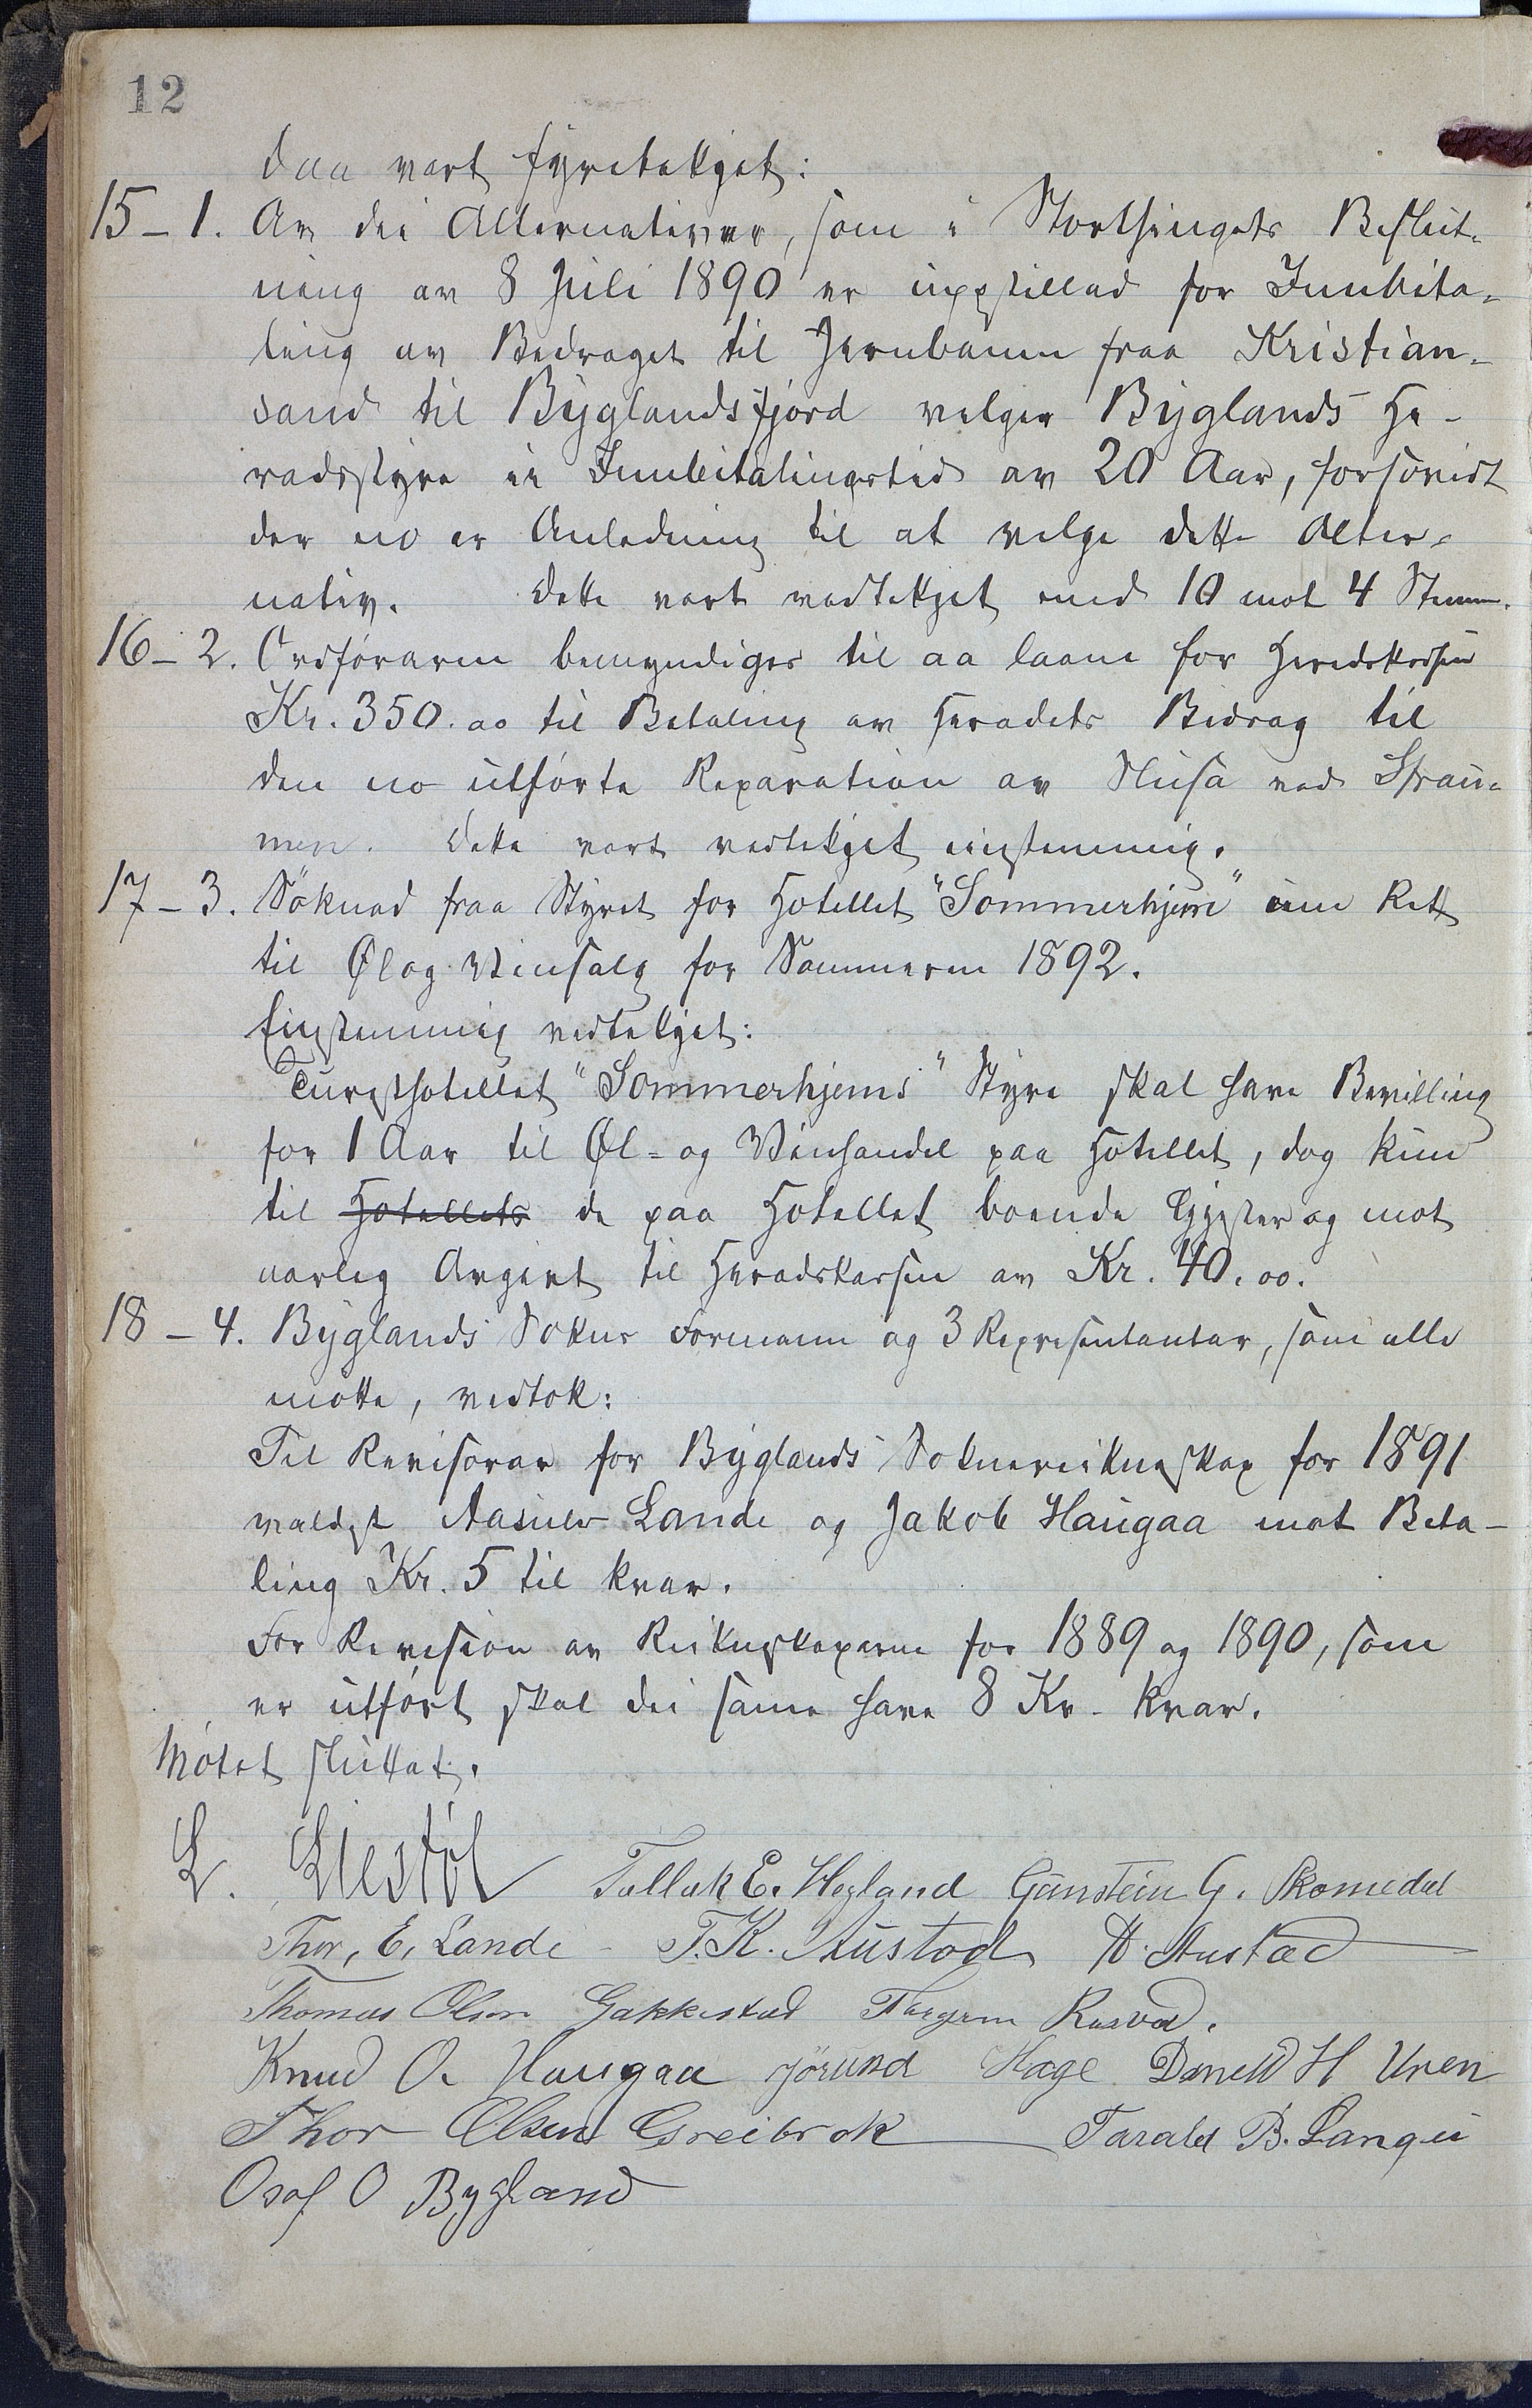 12
daa vart fyreteket:
15 – 1. Av dei Alternativer, som i Storthingets Beslut-
ning av 8 Juli 1890 er uppstillad for Innbeta-
ling av Bedraget til Jernbanen fraa Kristian-
sand til Byglandsfjord velger Byglands He-
radsstyre ei Innbetalingstid av 20 Aar, forsovidt
der no er Anledning til at velge dette Alter-
nativ. Dette vart vedtekjet med 10 mot 4 Stemm.
16 – 2. Ordføraren bemyndiges til aa laane for Heradskassen
Kr. 350.00 til Betaling av Heradets Bidrag til
den no utførte Reparation av Slusa ved Strau-
men. Dette vart vedtekjet einstemmig.
17 – 3. Søknad fraa Styret for Hotellet "Sommerhjem" um Rett
til Øl og Vinsalg for Sommeren 1892.
Einstemmig vedtekjet:
Turisthotellet "Sommerhjems" Styre skal have Bevilling
for 1 Aar til Øl- og Vinhandel paa Hotellet, dog kun
til Hotellets de paa Hotellet boende Gjester og mot
aarleg Avgift til Heradskassen av Kr. 40.00.
18 – 4. Byglands Sokns Formann og 3 Representantar, som alle
møtte, vedtok:
Til Revisorar for Byglands Soknereikneskap for 1891
valdest Aasulv Lande og Jakob Haugaa mot Beta-
ling Kr. 5 til kvar.
For Revision av Reikneskaperne for 1889 og 1890, som
er utført skal dei same have 8 Kr. kvar.
Møtet sluttat.
L. Liestøl Tallak E. Hegland Gunstein G. Skomedal
Thor, E, Lande - T. K. Austad A. Austad
Thomas Olsen Gakkestad Torgrim Rusvad.
Knud O. Haugaa Jørund Hage Daniel H Uren
Thor Olsen Greibrok Tarald B. Langei
Osof O Bygland